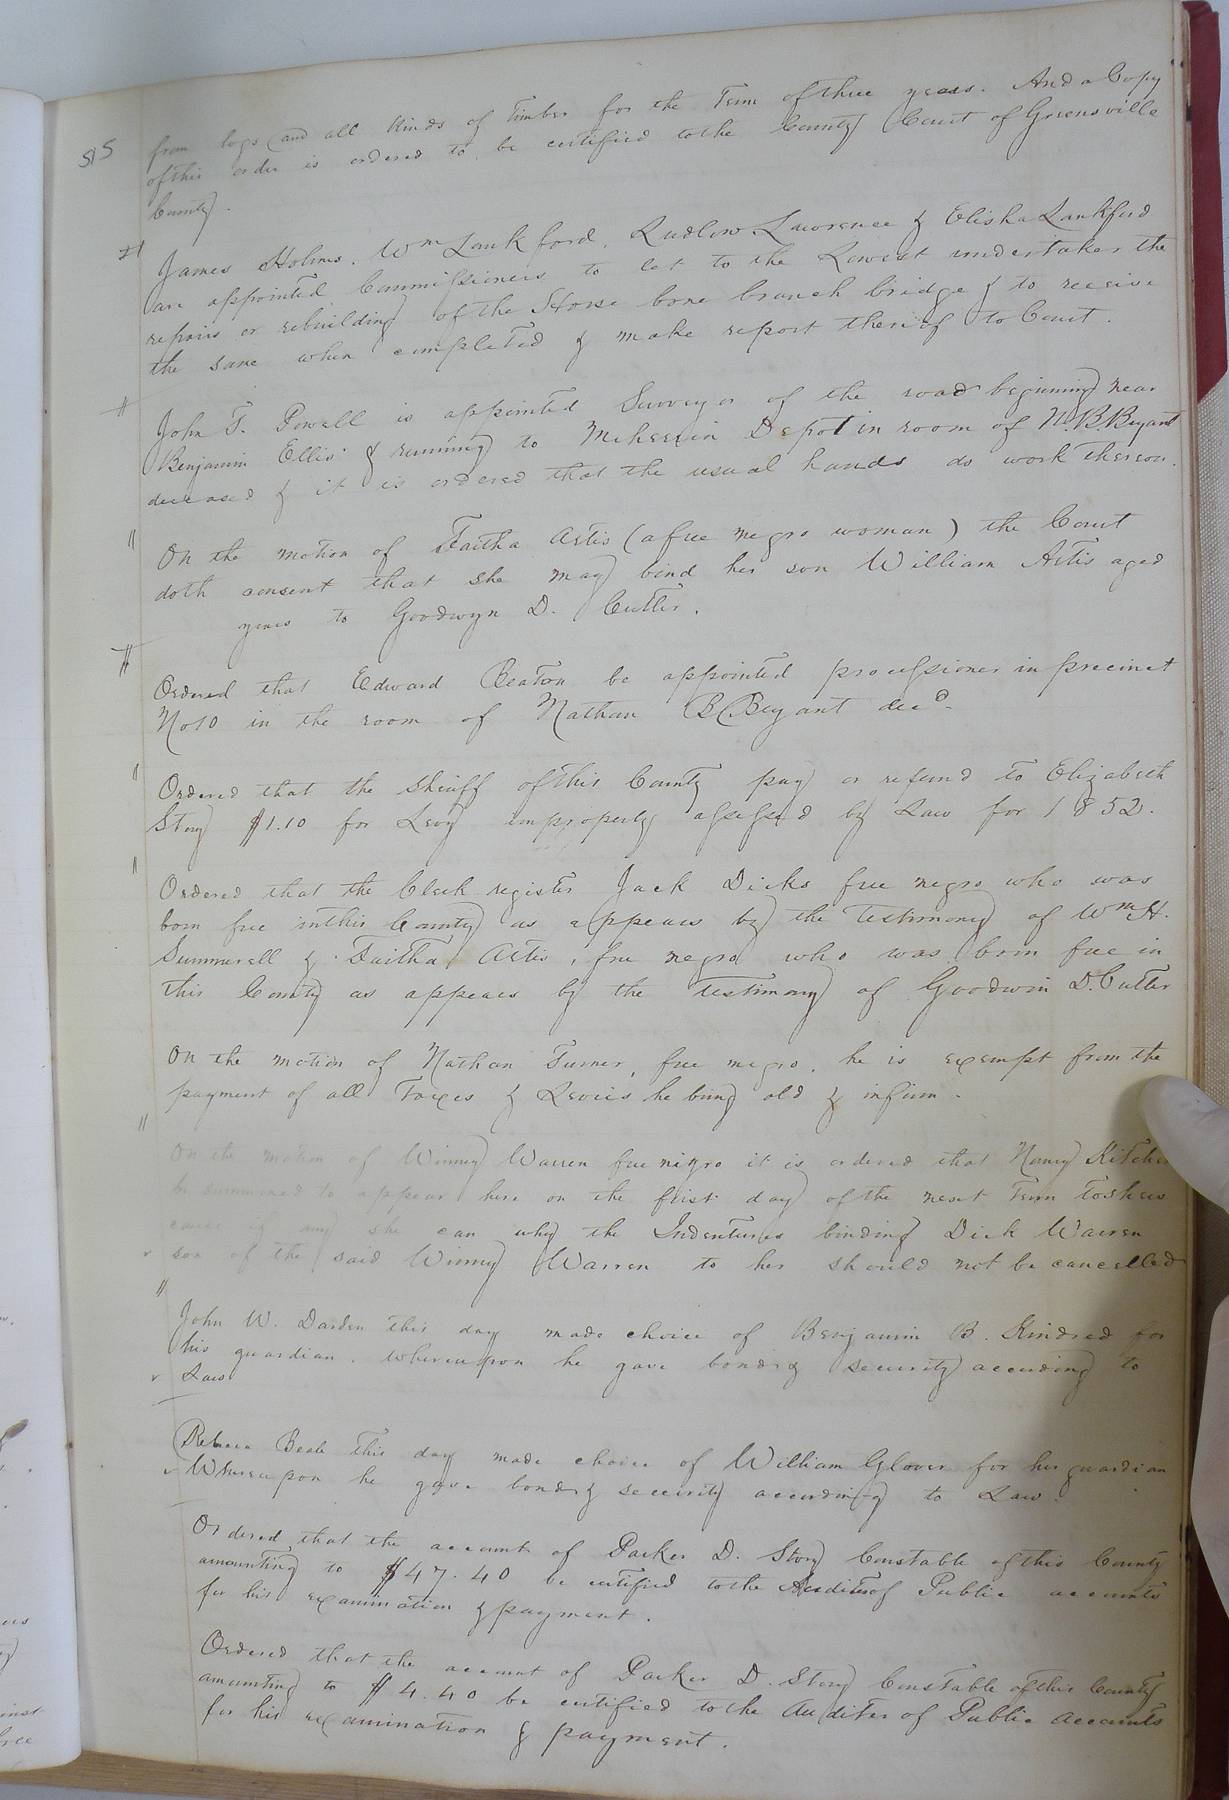 515
from logs and all kinds of Timber for the Term of three years. And a Copy
of this order is ordered to be certified to the County Court of Greensville
County.
James Holms, Wm Lankford, Ludlow Lawrence & Elisha Lankford
are appointed Commissioners to let to the Lowest undertaker the
repairs or rebuilding of the Horse bone branch bridge & to receive
the same when completed & make report thereof to Court.
John T. Powell is appointed Surveyor of the road beginning near
Benjamin Ellis' & running to Meherrin Depot in room of N B Bryant
deceased & it is ordered that the usual hands do work thereon.
On the motion of Faitha Artis (a free negro woman) the Court
doth consent that she may bind her son William Artis aged
years to Goodwyn D. Cutler.
Ordered that Edward Beaton be appointed processioner in precinct
No 10 in the room of Nathan B Bryant decd.
Ordered that the Sheriff of this County pay or refund to Elizabeth
Story $1.10 for Levy improperly assessed by Law for 1852.
Ordered that the Clerk register Jack Dicks free negro who was
born free in this County as appears by the Testimony of Wm H.
Summerell & Faitha Artis, free negro who was born free in
this County as appears by the testimony of Goodwin D. Cutler
On the motion of Nathan Turner, free negro, he is exempt from the
payment of all Taxes & Levies he being old & infirm.
On the motion of Winney Warren free nigro it is ordered that Nancy Kitchen
be summoned to appear here on the first day of the next Term to shew
cause if any she can why the Indentures binding Dick Warren
son of the said Winney Warren to her should not be cancelled
John W. Darden this day made choice of Benjamin B. Kindred for
his guardian. whereupon he gave bond & security according to
Law
Rebecca Beale This day made choice of William Glover for her guardian
Whereupon he gave bond & security according to Law.
Ordered that the account of Parker D. Story Constable of this County
amounting to $47.40 be certified to the Auditor of Public accounts
for his examination & payment.
Ordered that the account of Parker D. Story Constable of this County
amounting to $4.40 be certified to the Auditer of Public Accounts
for his examination & payment.